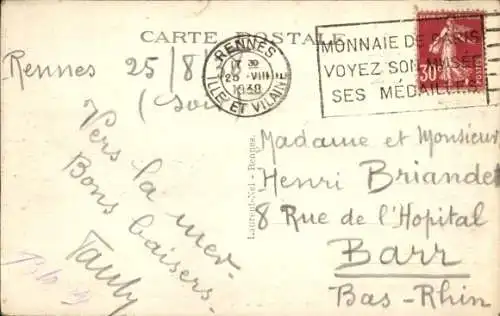 CARTE POSTALE
RENNES
25 VIII
1938
ILLE ET VILAINE
MONNAIE DE PARIS
VOYEZ SON MUSÉE
SES MÉDAILLES
30
POSTES
Rennes 25/8/
(soir
Vers la mer.
Bons baisers.
Laurent-Nel - Rennes.
Madame et Monsieur
Henri Briandet
8 Rue de l'Hopital
Barr
Bas-Rhin